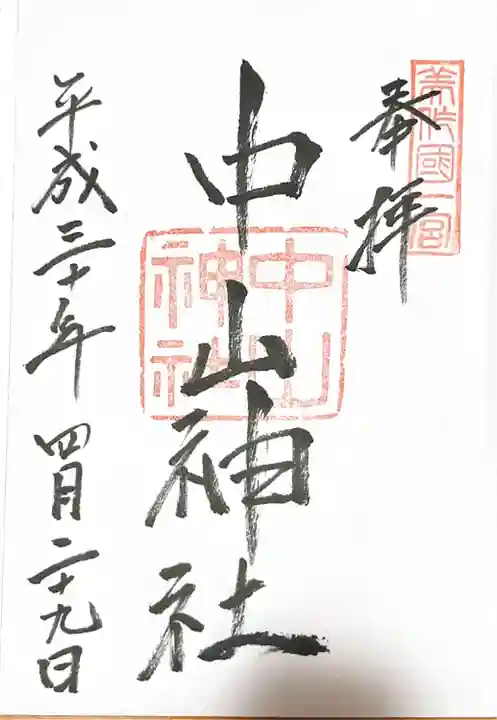 美作國一宮
奉拝
中山神社
中山
神社
平成三十年四月二十九日